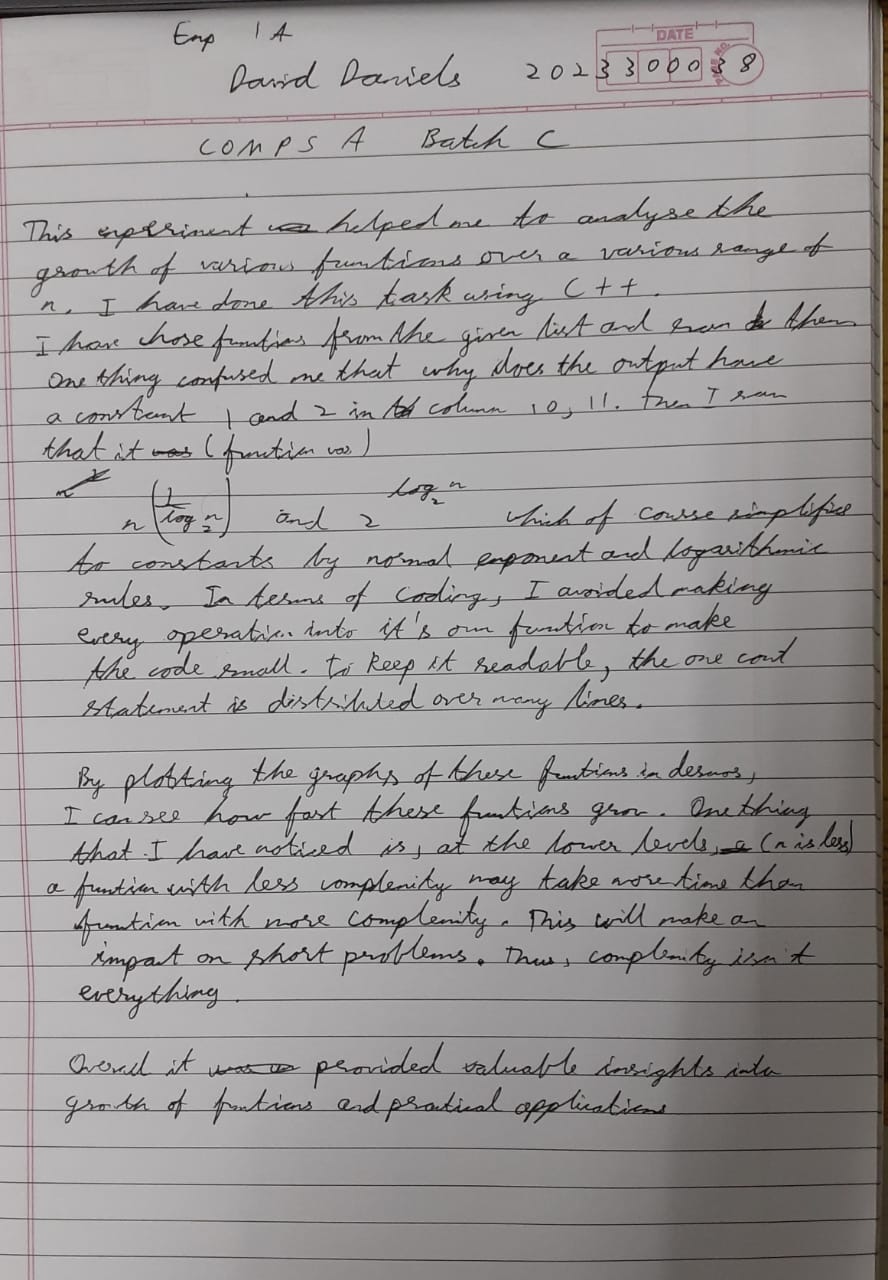 Exp 1A
DATE
David Daniels 2023300038
PAGE NO.
COMPS A Batch C
This experiment helped me to analyse the
growth of various functions over a various range of
n. I have done this task using C++.
I have chose functions from the given list and ran them
One thing confused me that why does the output have
a constant 1 and 2 in column 10, 11. Then I saw
that it (function was)
n^(1/log₂n) and 2^log₂n which of course simplifies
to constants by normal exponent and logarithmic
rules. In terms of coding, I avoided making
every operation into it's own function to make
the code small. To keep it readable, the one cout
statement is distributed over many lines.
By plotting the graphs of these functions in desmos,
I can see how fast these functions grow. One thing
that I have noticed is, at the lower levels, (n is less)
a function with less complexity may take more time than
function with more complexity. This will make an
impact on short problems. Thus, complexity isn't
everything.
Overall it provided valuable insights into
growth of functions and practical applications